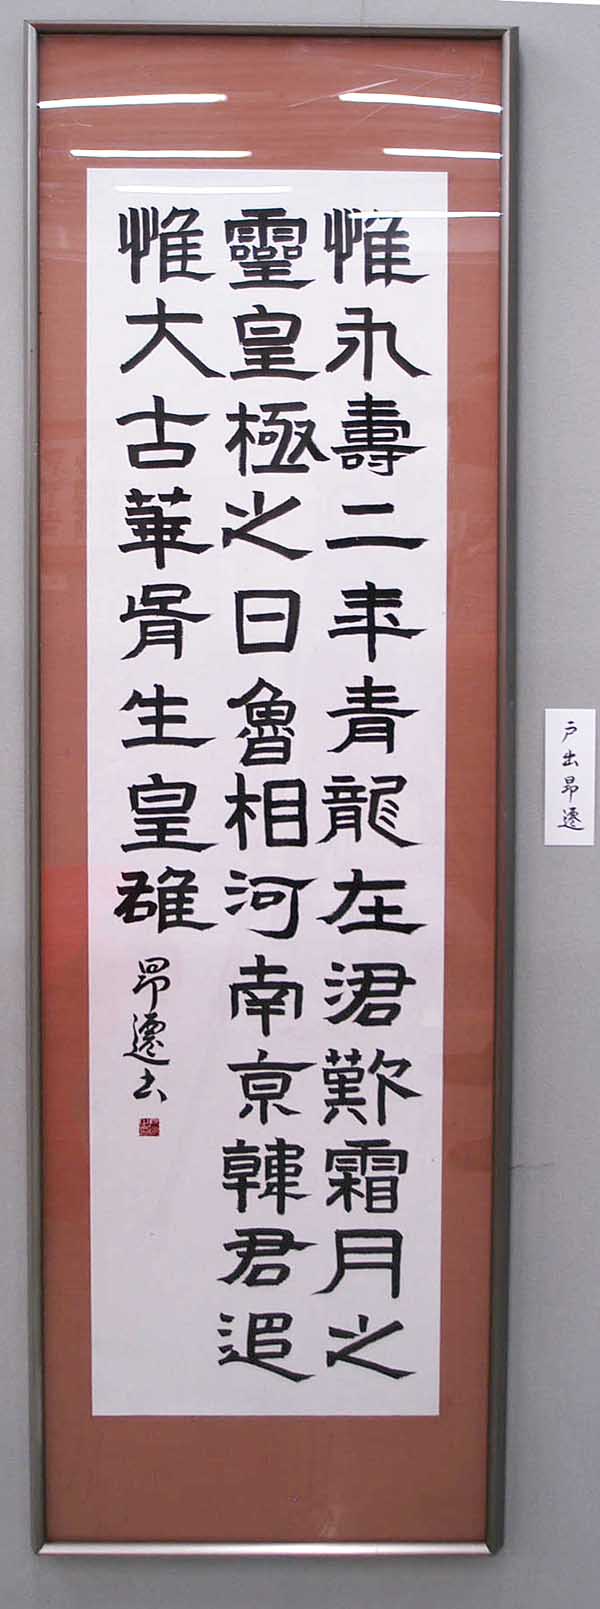 惟永壽二年青龍在涒歎霜月之
靈皇極之日魯相河南京韓君追
惟大古華胥生皇雄
昂遷書
戸出昂遷